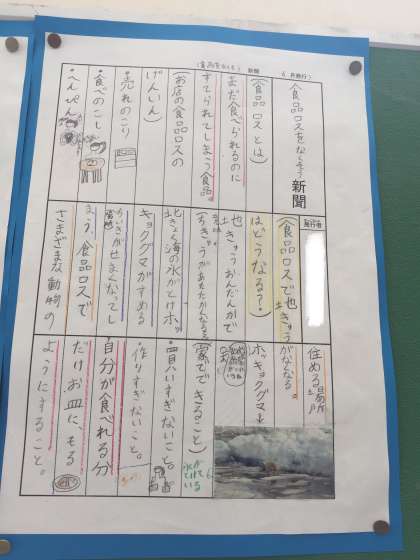 新聞
月発行)
食品ロスをなくそう
新聞
(食品ロスとは)
まだ食べられるのに
すてられてしまう食品。
(お店の食品ロスの
げんいん)
・売れのこり
・食べのこし
・へんぴん
発行者
(食品ロスで地きゅう
はどうなる?)
地きゅうおんだんかで
(ちきゅうがあたたかくなる)
北きょく海の氷がとけホッ
キョクグマがすめる
ちいきがせまくなってし
まう。食品ロスで
さまざまな動物の
住める場所
がなくなる。
ホッキョクグマ↓
(家でできること)
・買いすぎないこと。
・作りすぎないこと。
・自分が食べれる分
だけお皿に、もる
ようにすること。
氷が
とけて
いる